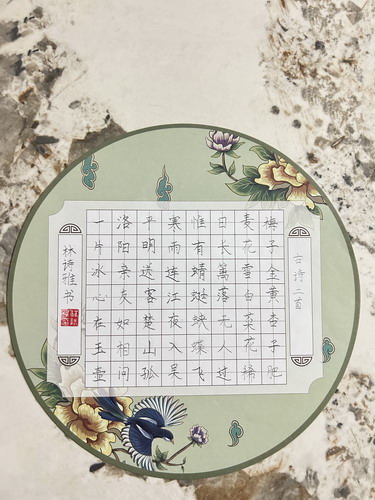 古诗二首
梅子金黄杏子肥
麦花雪白菜花稀
日长篱落无人过
惟有蜻蜓蛱蝶飞
寒雨连江夜入吴
平明送客楚山孤
洛阳亲友如相问
一片冰心在玉壶
林诗雅书